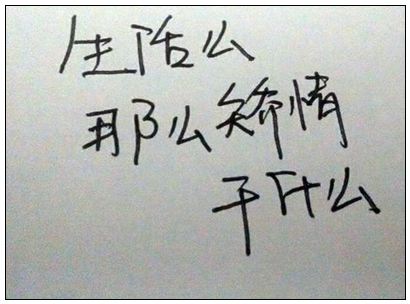 生活么
那么矫情
干什么